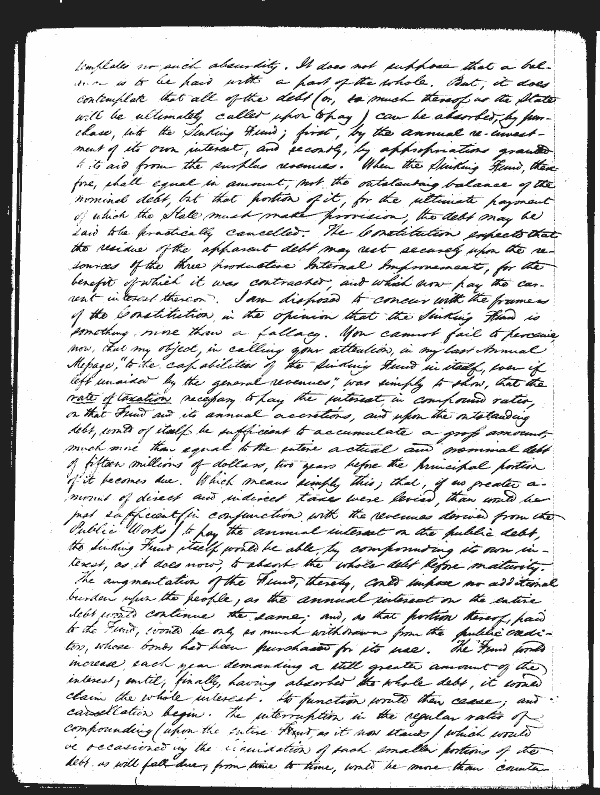 templates no such absurdity. It does not suppose that a bal-
is to be paid with a part of the whole. But, it does
contemplate that all of the debt (or, so much thereof as the State
will be ultimately called upon to pay) can be absorbed, by pur-
chase, into the Sinking Fund; first, by the annual re-invest-
ment of its own interest, and secondly, by appropriations granted
to its aid from the surplus revenues. When the Sinking Fund, there-
fore, shall equal in amount, not the outstanding balance of the
nominal debt, but that portion of it, for the ultimate payment
of which the State must make provision, the debt may be
said to be practically cancelled. The Constitution expects that
the residue of the apparent debt may rest securely upon the re-
sources of the three productive Internal Improvements, for the
benefit of which it was contracted, and which now pay the cur-
rent interest thereon. I am disposed to concur with the framers
of the Constitution, in the opinion that the Sinking Fund is
something more than a fallacy. You cannot fail to perceive
now, that my object, in calling your attention, in my last Annual
Message, "to the capabilities of the Sinking Fund in itself, even if
left unaided by the general revenues", was simply to show, that the
rate of taxation necessary to pay the interest, in compound ratio,
on that Fund and its annual accretions, and upon the outstanding
debt, would of itself be sufficient to accumulate a gross amount,
much more than equal to the entire actual and nominal debt
of fifteen millions of dollars, two years before the principal portion
of it becomes due. Which means simply this; that, if no greater a-
mount of direct and indirect taxes were levied, than would be
just sufficient (in conjunction with the revenues derived from the
Public Works) to pay the annual interest on the public debt,
the Sinking Fund itself would be able, by compounding its own in-
terest, as it does now, to absorb the whole debt before maturity.
The augmentation of the Fund, thereby, could impose no additional
burden upon the people, as the annual interest on the entire
debt would continue the same; and, as that portion thereof, paid
to the Fund, would be only so much withdrawn from the public credi-
tors, whose bonds had been purchased for its use. The Fund would
increase, each year demanding a still greater amount of the
interest; until, finally, having absorbed the whole debt, it would
claim the whole interest. Its function would then cease; and
cancellation begin. The interruption in the regular ratio of
compounding (upon the entire Fund as it now stands) which would
be occasioned by the liquidation of such smaller portions of the
debt as will fall due, from time to time, would be more than counter